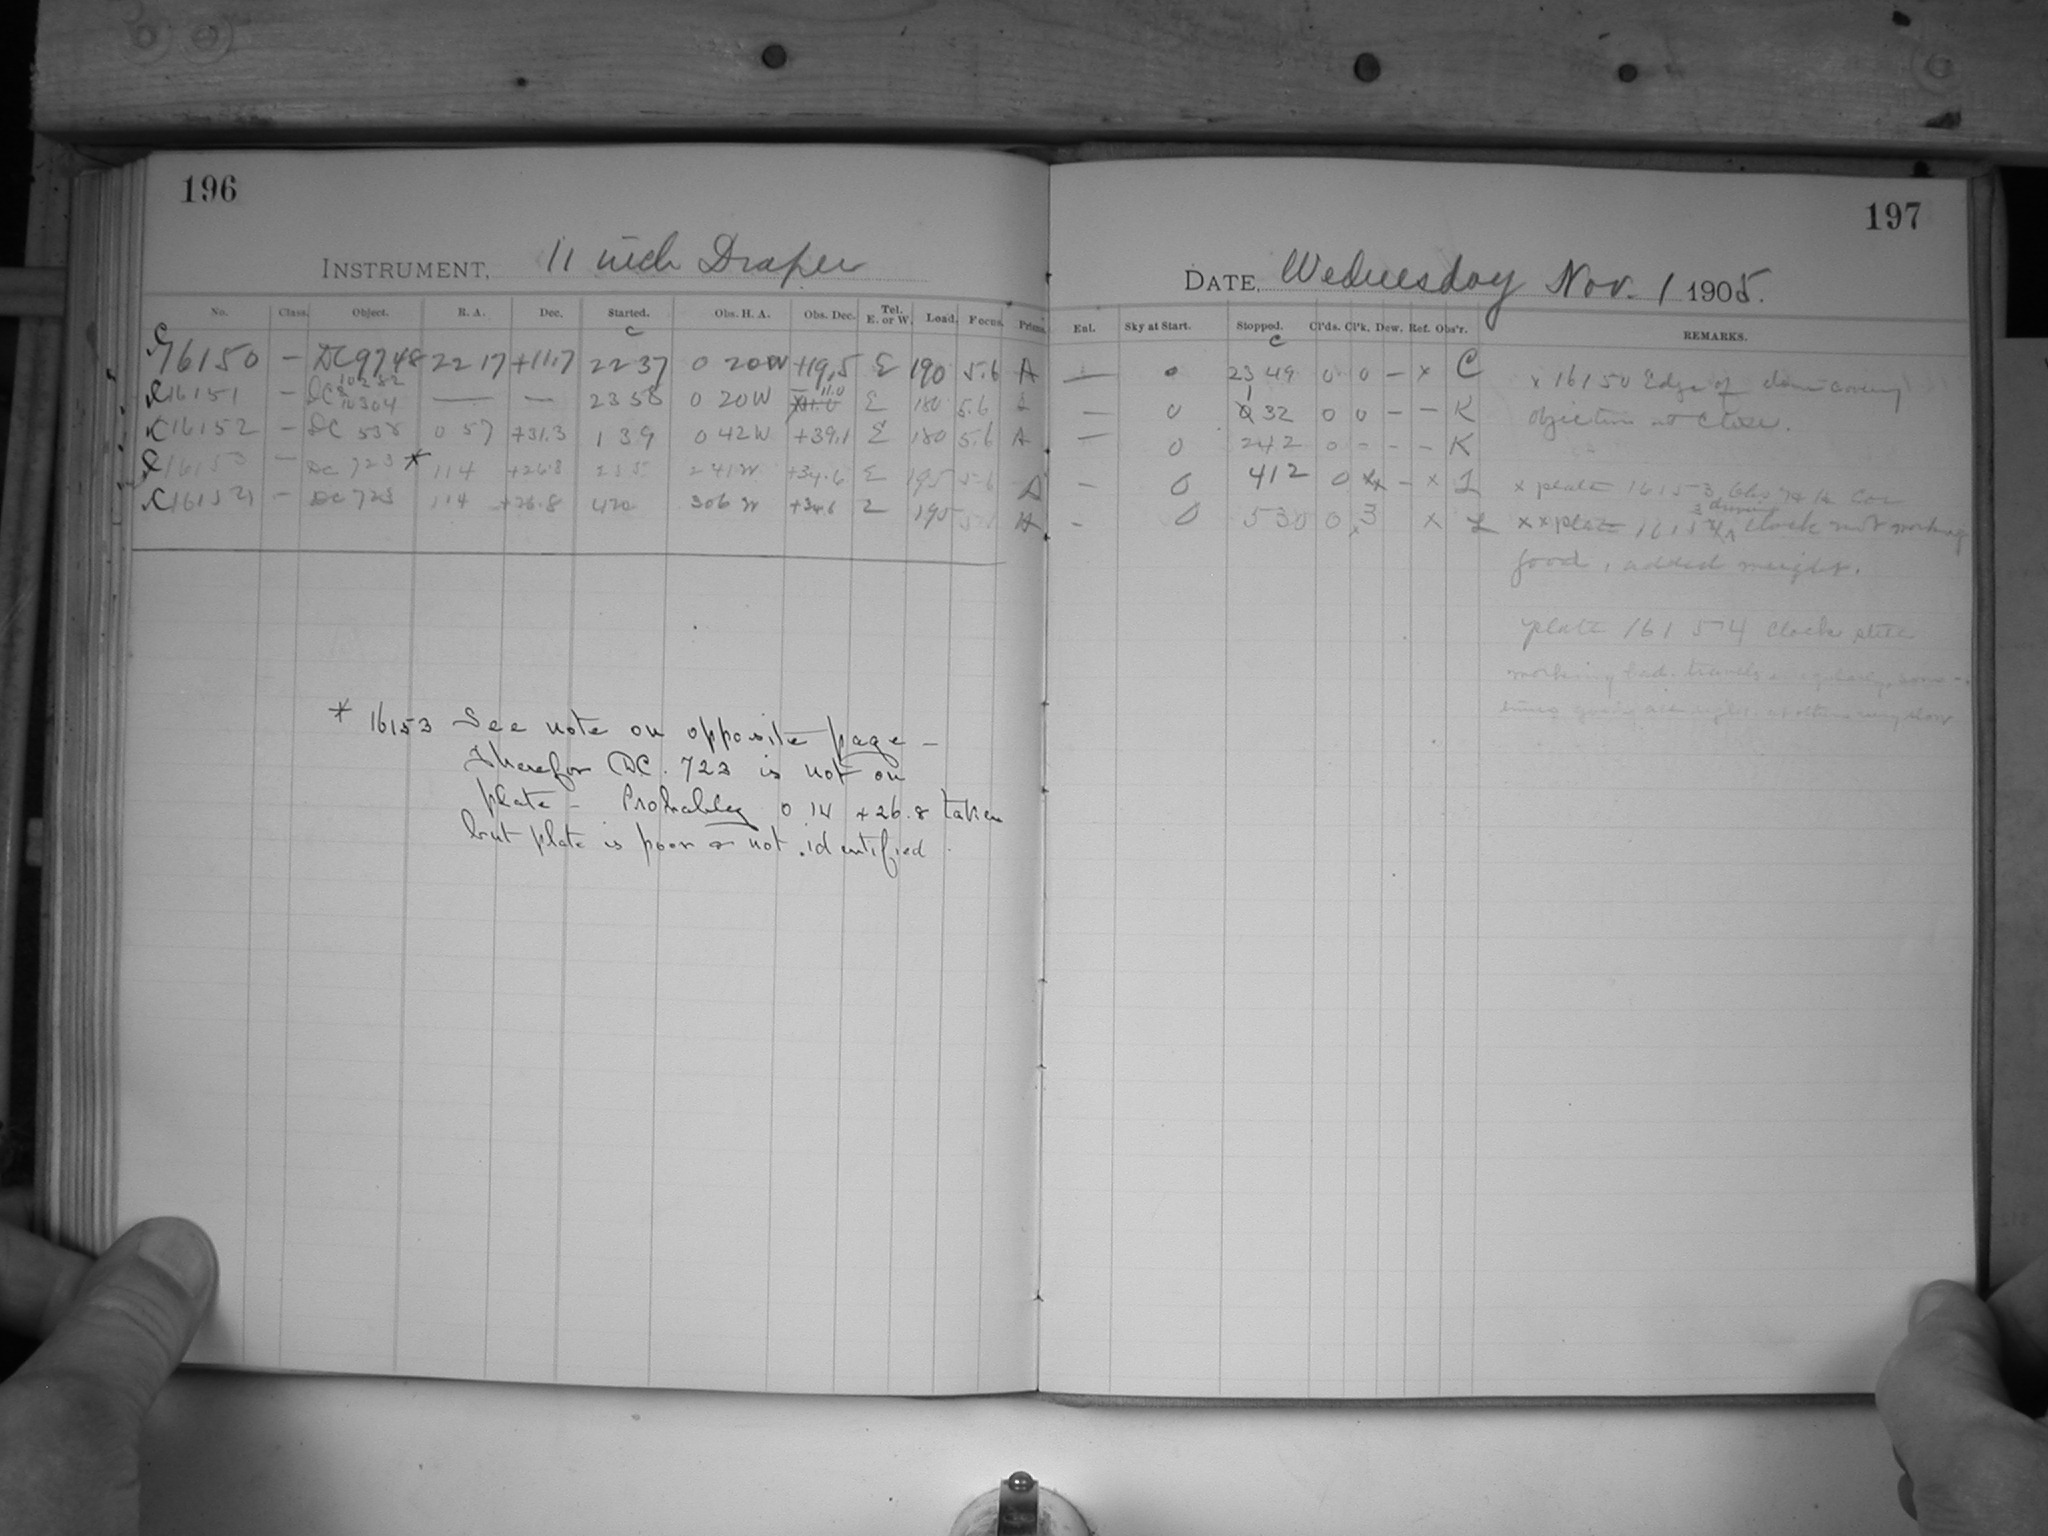 196
INSTRUMENT, 11 inch Draper
No. Class. Object. R. A. Dec. Started. Obs. H. A. Obs. Dec. Tel. E. or W. Load. Focus. Prisms.
C
C 16150 — DC 9748 22 17 +11.7 22 37 0 20 W +19.5 E 190 5.6 A
C 16151 — DC 10282 & 10304 — — 23 58 0 20 W 11.0 E 180 5.6
C 16152 — DC 538 0 57 +31.3 1 39 0 42 W +39.1 E 180 5.6 A
C 16153 — DC 723 * 1 14 +26.8 2 55 2 41 W +34.6 E 195 5.6 A
C 16154 — DC 723 1 14 +26.8 4 20 3 06 W +34.6 E 195 A
* 16153 See note on opposite page —
Therefor DC. 723 is not on
plate — Probably 0 14 +26.8 taken
but plate is poor & not identified.
197
DATE, Wednesday Nov. 1 1905.
Exl. Sky at Start. Stopped. Cl'ds. Cl'k. Dew. Ref. Obs'r. REMARKS.
C
— 0 23 49 0 0 — x C x 16150 Edge of dome covering
— 0 1 32 0 0 — — K objective at close.
— 0 2 42 0 — — — K
— 0 4 12 0 xx — x L x plate 16153
- 0 5 30 0 3 x L xx plate 16153 driving clock not working
good, added weight.
plate 16154 clock still
working bad. travels irregularly, some-
times going all right, at others very slow